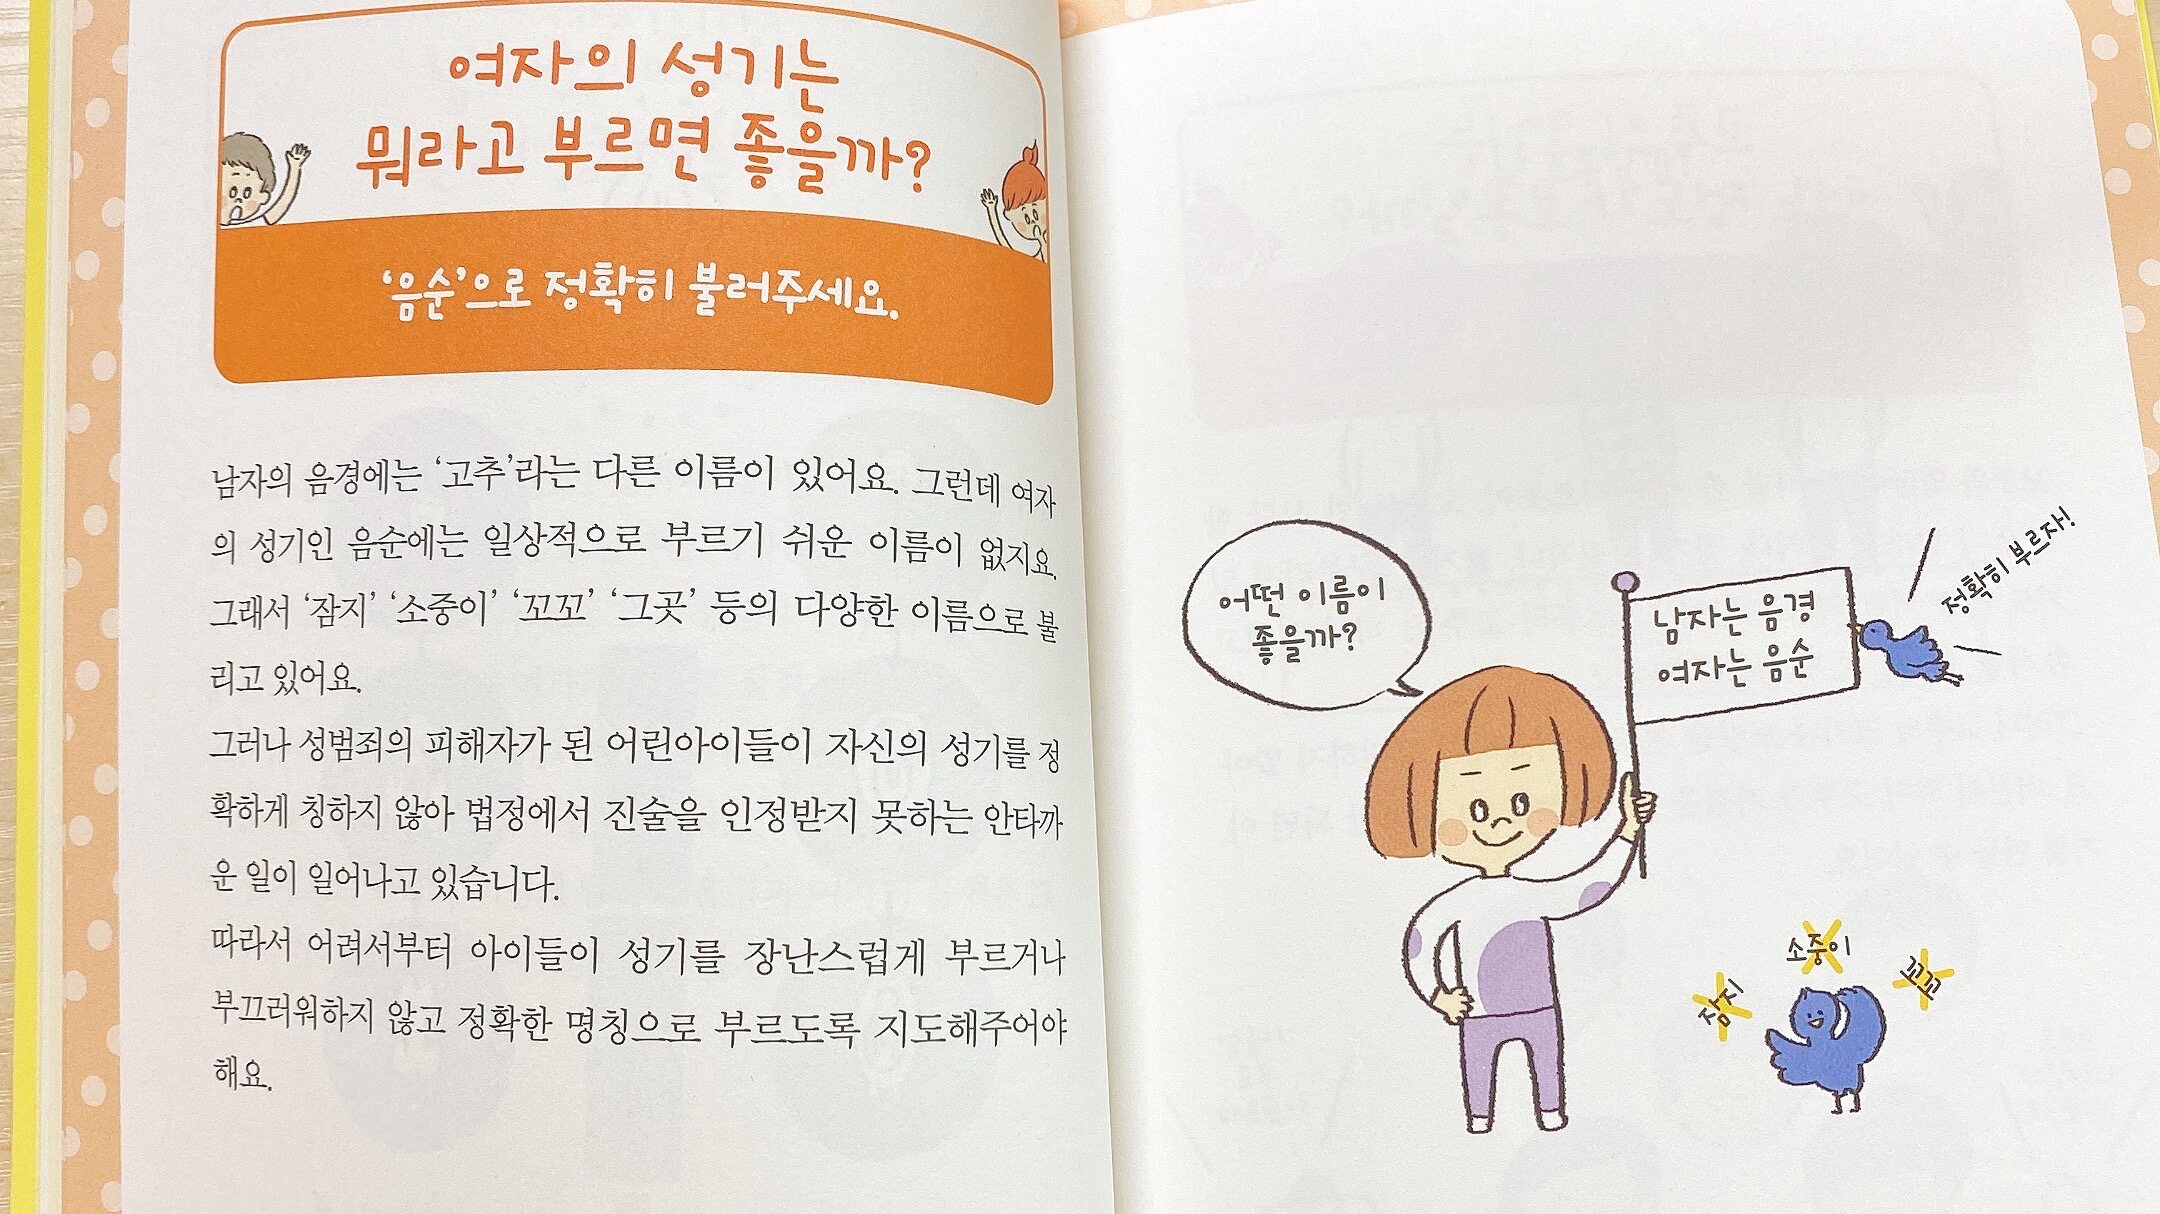 여자의 성기는
뭐라고 부르면 좋을까?
‘음순’으로 정확히 불러주세요.
남자의 음경에는 ‘고추’라는 다른 이름이 있어요. 그런데 여자
의 성기인 음순에는 일상적으로 부르기 쉬운 이름이 없지요.
그래서 ‘잠지’ ‘소중이’ ‘꼬꼬’ ‘그곳’ 등의 다양한 이름으로 불
리고 있어요.
그러나 성범죄의 피해자가 된 어린아이들이 자신의 성기를 정
확하게 칭하지 않아 법정에서 진술을 인정받지 못하는 안타까
운 일이 일어나고 있습니다.
따라서 어려서부터 아이들이 성기를 장난스럽게 부르거나
부끄러워하지 않고 정확한 명칭으로 부르도록 지도해주어야
해요.
어떤 이름이
좋을까?
남자는 음경
여자는 음순
정확히 부르자!
잠지
소중이
꼬꼬